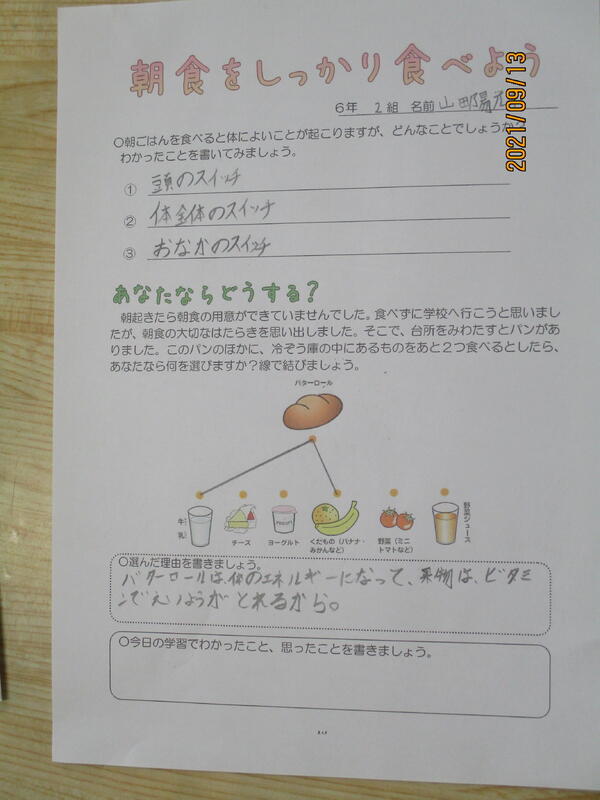 朝食をしっかり食べよう
2021/09/13
6年 2組 名前 山田陽
〇朝ごはんを食べると体によいことが起こりますが、どんなことでしょうか?
わかったことを書いてみましょう。
① 頭のスイッチ
② 体全体のスイッチ
③ おなかのスイッチ
あなたならどうする?
朝起きたら朝食の用意ができていませんでした。食べずに学校へ行こうと思いまし
たが、朝食の大切なはたらきを思い出しました。そこで、台所をみわたすとパンがあ
りました。このパンのほかに、冷ぞう庫の中にあるものをあと2つ食べるとしたら、
あなたなら何を選びますか?線で結びましょう。
バターロール
牛乳
チーズ
ヨーグルト
くだもの(バナナ・
みかんなど)
野菜(ミニ
トマトなど)
野菜ジュース
〇選んだ理由を書きましょう。
バターロールは、体のエネルギーになって、果物は、ビタミ
ンでえいようがとれるから。
〇今日の学習でわかったこと、思ったことを書きましょう。